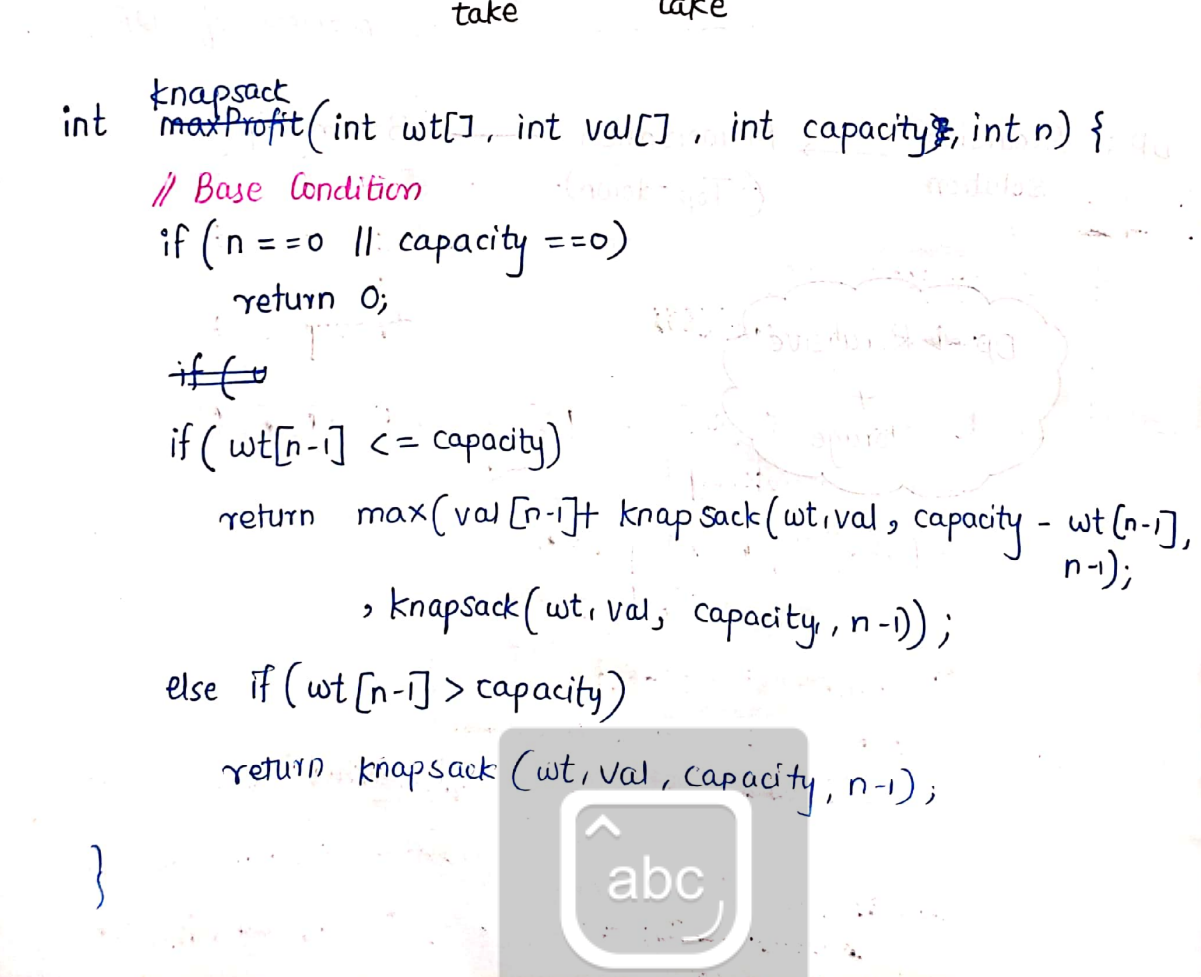 take take
knapsack
int maxProfit(int wt[], int val[], int capacity, int n) {
// Base Condition
if (n==0 || capacity ==0)
return 0;
if (
if (wt[n-1] <= capacity)
return max(val[n-1]+ knapsack(wt,val, capacity - wt[n-1],
n-1);
, knapsack(wt, val, capacity, n-1));
else if (wt[n-1] > capacity)
return knapsack (wt, val, capacity, n-1);
}
abc